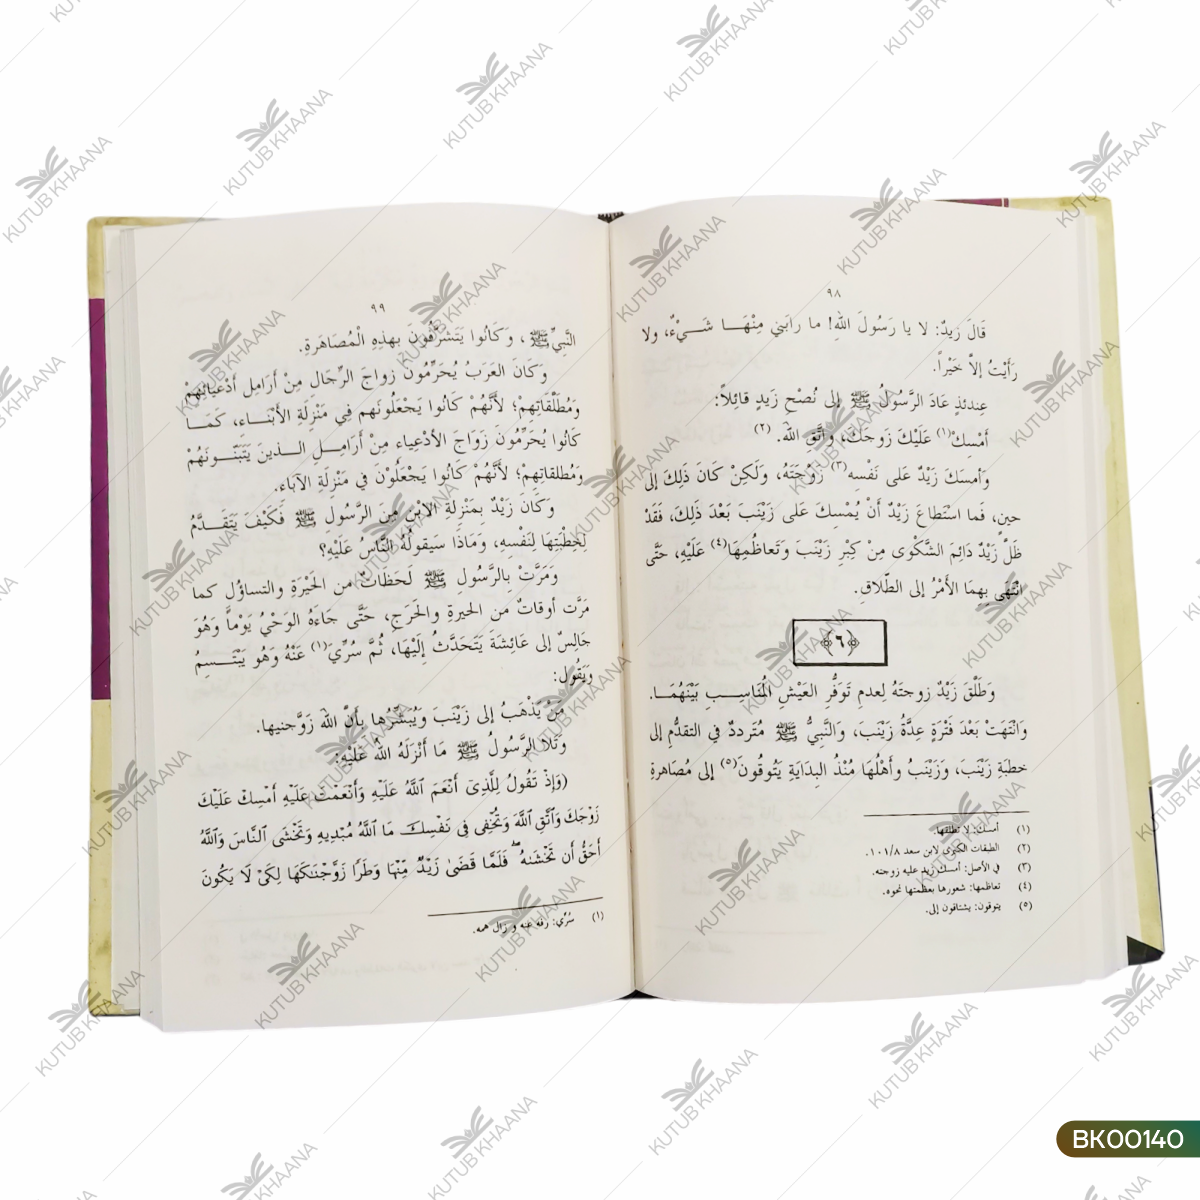 ٩٨
قَالَ زيدٌ: لا يا رَسُولَ اللهِ! ما رابَني مِنْهَـــا شَـــيْءٌ، ولا
رَأَيْتُ إلاّ خَيْراً.
عِندئذٍ عَادَ الرَّسُولُ ﷺ إلى نُصْحِ زَيدٍ قائِلاً:
أَمْسِكْ(١) عَلَيْكَ زَوجَكَ، واتَّقِ اللهَ. (٢)
وَأمسَكَ زَيْدٌ عَلى نَفْسِه(٣) زَوْجَتَهُ، وَلَكِنْ كَانَ ذَلِكَ إلى
حينٍ، فَما اسْتَطَاعَ زَيْدٌ أَنْ يُمْسِكَ عَلى زَيْنَبَ بَعْدَ ذَلِكَ، فَقَدْ
ظَلَّ زَيْدٌ دَائِمَ الشَّكْوى مِنْ كِبْرِ زَيْنَبَ وَتَعاظُمِهَا(٤) عَلَيْهِ، حَتَّى
انْتَهى بِهِمَا الأَمْرُ إلى الطّلاقِ.
﴿٦﴾
وَطَلَّقَ زَيْدٌ زوجتَهُ لِعدمِ تَوَفُّرِ العَيْشِ المُنَاسِـــبِ بَيْنَهُمَـــا.
وَانْتَهَتْ بَعْدَ فَتْرَةٍ عِدَّةُ زَيْنَبَ، وَالنَّبِيُّ ﷺ مُتَرددٌ في التقدُّمِ إلى
خطبَةِ زَيْنَبَ، وَزَيْنَبُ وأَهْلُهَا مُنْذُ البِدَايَةِ يَتُوقُونَ(٥) إلى مُصَاهرةِ
(١) أمسك: لا تطلقها.
(٢) الطبقات الكبرى لابن سعد ١٠١/٨.
(٣) في الأصل: أمسك زيد عليه زوجته.
(٤) تعاظمها: شعورها بعظمتها نحوه.
(٥) يتوقون: يشتاقون إلى.
٩٩
النَّبيِّ ﷺ، وَكَانُوا يَتَشَرَّفُونَ بهذِهِ الْمُصَاهَرةِ.
وَكَانَ العَرَبُ يُحَرِّمُونَ زواجَ الرِّجَالِ مِنْ أَرَامِلِ أَدْعِيائِهِمْ
وَمُطَلَّقَاتِهِمْ؛ لأَنَّهُمْ كَانُوا يَجْعَلُونَهم فِي مَنْزِلَةِ الأَبْنَـــاءِ، كَمَـــا
كَانُوا يُحَرِّمُونَ زَوَاجَ الأَدْعِيَاءِ مِنْ أَرَامِـــلِ الـــذينَ يَتَبَنَّـــونَهُمْ
وَمُطلقاتِهِمْ؛ لأَنَّهُمْ كَانُوا يَجْعَلُونَ في مَنْزِلَةِ الآباء.
وَكَانَ زَيْدٌ بِمَنْزِلَةِ الابْنِ مِن الرَّسُولِ ﷺ فَكَيْفَ يَتَقَـــدَّمُ
لِخِطْبَتِهَا لِنَفْسِهِ، وَمَاذَا سَيقولُهُ النَّاسُ عَلَيْهِ؟
وَمَرَّتْ بِالرَّسُولِ ﷺ لَحَظَاتٌ من الحَيْرَةِ والتساؤُل كما
مَرَّت أوقاتٌ من الحيرةِ والحَرَجِ، حَتَّى جَاءهُ الوَحْيُ يَوْماً وَهُوَ
جَالِسٌ إلى عَائِشَةَ يَتَحَدَّثُ إِلَيْهَا، ثُمَّ سُرِّيَ(١) عَنْهُ وَهُوَ يَبْتَـــسِمُ
وَيَقُولُ:
مَنْ يَذْهَبُ إلى زَيْنَبَ وَيُبَشِّرُها بأَنَّ اللهَ زَوَّجنيها.
وتَلا الرَّسولُ ﷺ مَا أَنْزَلَهُ اللهُ عَلَيْهِ:
(وَإِذْ تَقُولُ لِلَّذِىٓ أَنْعَمَ ٱللَّهُ عَلَيْهِ وَأَنْعَمْتَ عَلَيْهِ أَمْسِكْ عَلَيْكَ
زَوْجَكَ وَٱتَّقِ ٱللَّهَ وَتُخْفِى فِى نَفْسِكَ مَا ٱللَّهُ مُبْدِيهِ وَتَخْشَى ٱلنَّاسَ وَٱللَّهُ
أَحَقُّ أَن تَخْشَىٰهُ ۖ فَلَمَّا قَضَىٰ زَيْدٌ مِّنْهَا وَطَرًا زَوَّجْنَـٰكَهَا لِكَىْ لَا يَكُونَ
(١) سُرِّي: رفه عنه و زال همه.
KUTUB KHAANA
BK00140